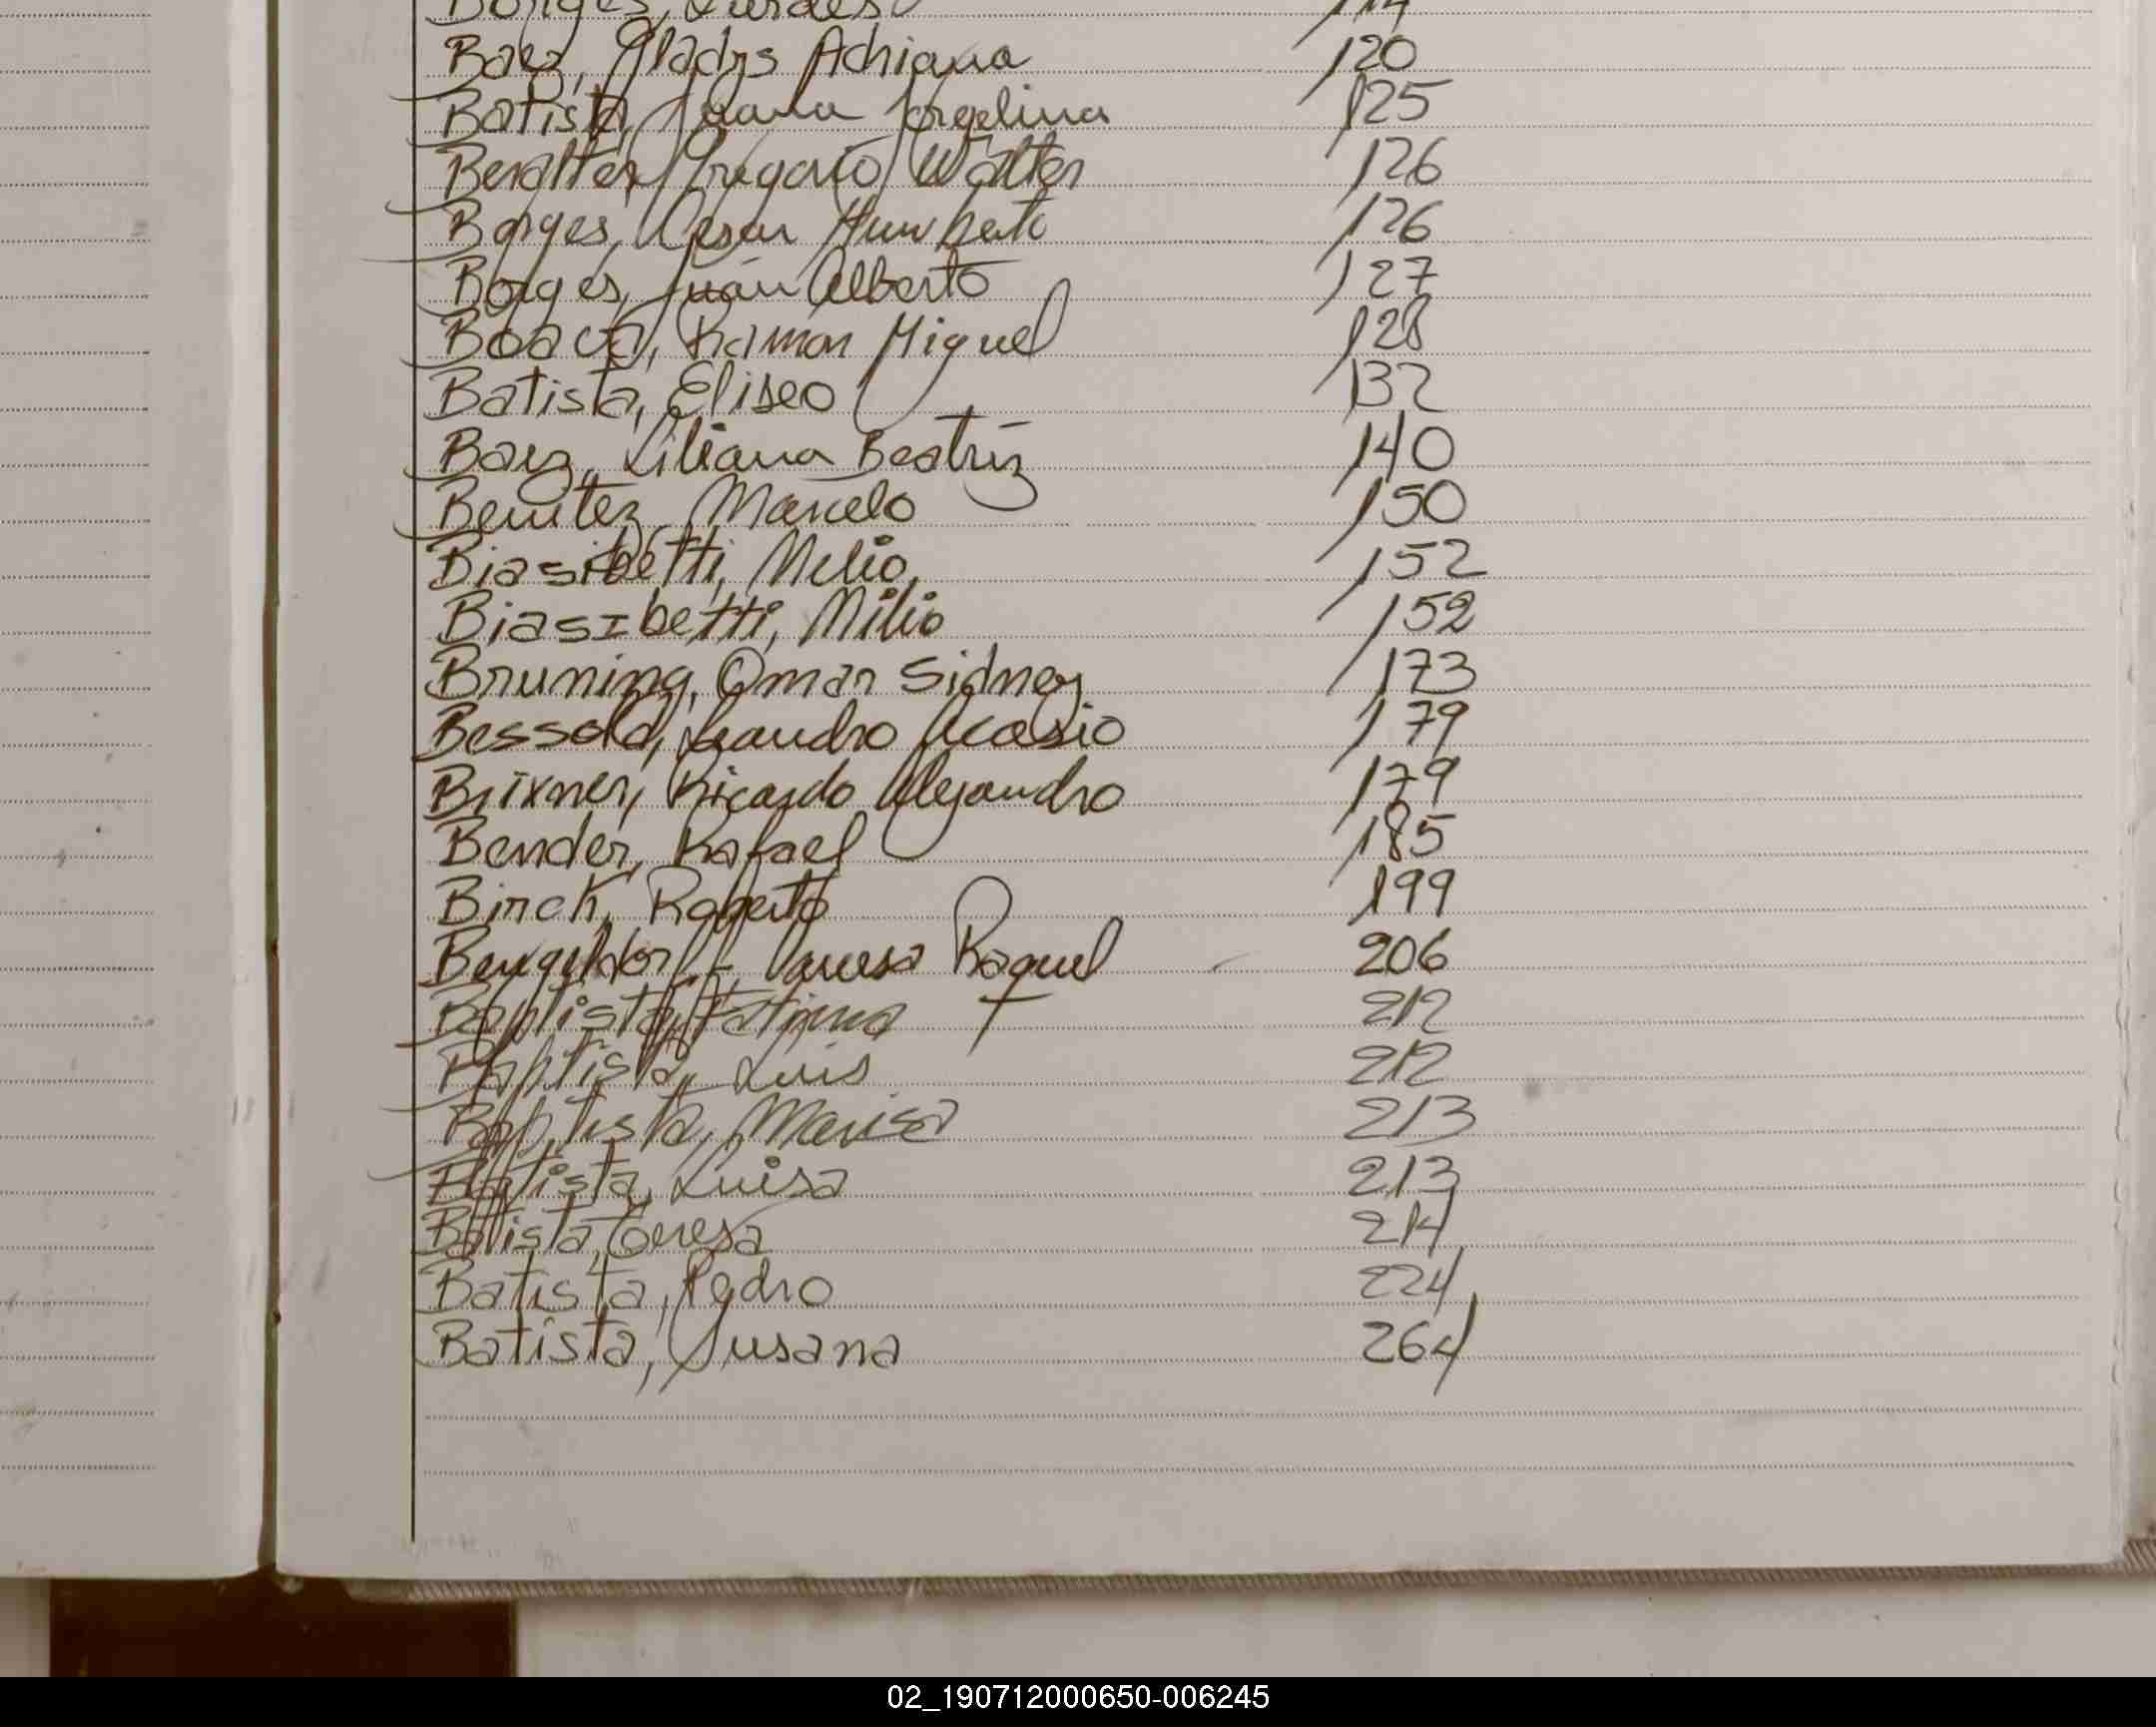 Borges, Lurdes 114
Baez, Gladys Adriana 120
Batista, Juana Jorgelina 125
Gregorio Walter 126
Borges, Cesar Humberto 126
Borges, Juan Alberto 127
Ramon Miguel 128
Batista, Eliseo 132
Baez, Liliana Beatriz 140
Benitez, Marcelo 150
Biasibetti, Melio 152
Biasibetti, Milio 152
Bruning, Omar Sidney 173
Leandro Acasio 179
Brixner, Ricardo Alejandro 179
Bender, Rafael 185
Birck, Roberto 199
Vanesa Raquel 206
Baptista, Fatima F 212
Baptista, Luis 212
Baptista, Marisa 213
Batista, Luisa 213
Batista, Teresa 214
Batista, Pedro 224
Batista, Susana 264
02_190712000650-006245